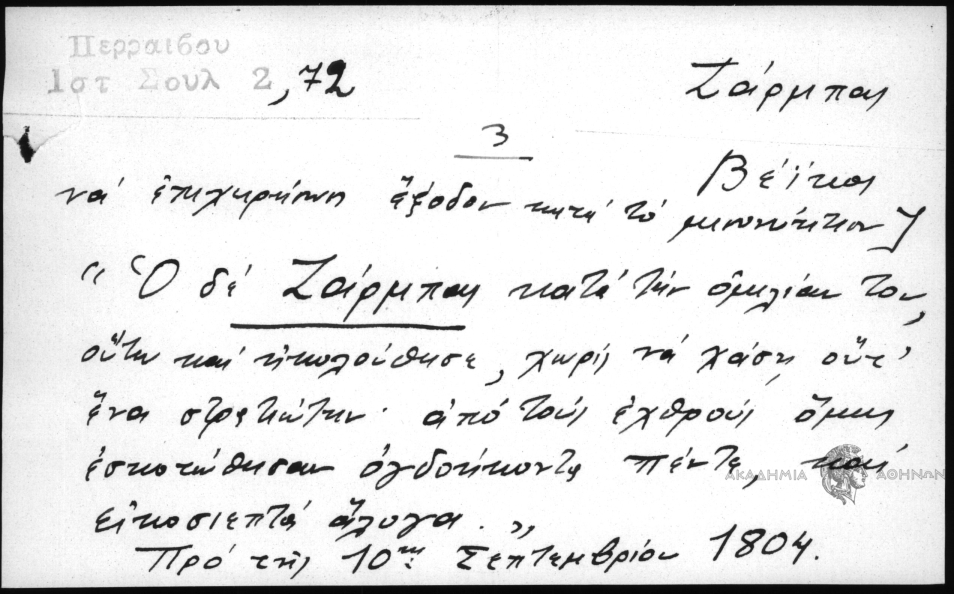 Περραιβου
Ιστ Σουλ 2,72
Ζάρμπας
3
Βέϊκας
νά ἐπιχειρήσῃ ἔξοδον κατά τό μεσονύκτιον)
"Ὁ δέ Ζάρμπας κατά τήν ὁμιλίαν του,
οὕτω καί ἠκολούθησε, χωρίς νά χάσῃ οὔτ'
ἕνα στρατιώτην· ἀπό τούς ἐχθρούς ὅμως
ἐσκοτώθησαν ὀγδοήκοντα πέντε, καί
εἰκοσιεπτά ἄλογα."
Πρό τῆς 10ης Σεπτεμβρίου 1804.
ΑΚΑΔΗΜΙΑ ΑΘΗΝΩΝ